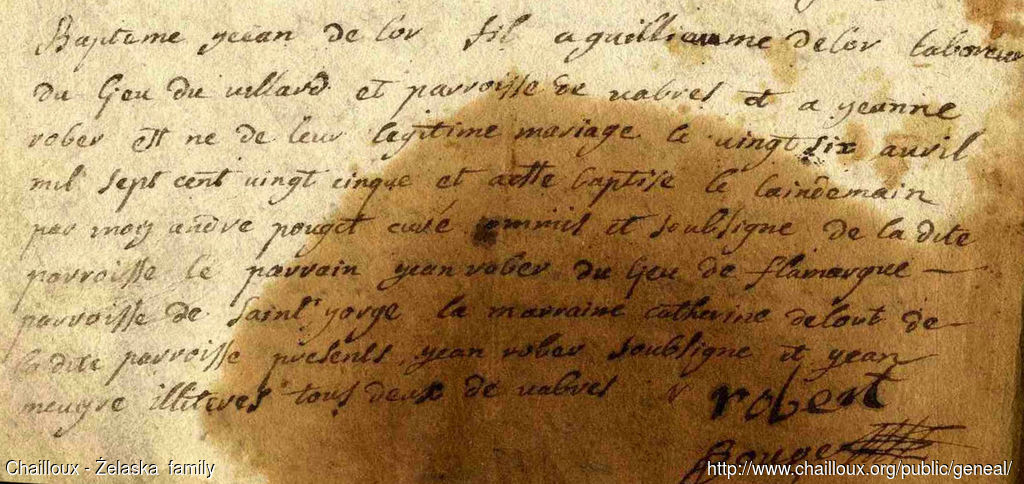 Bapteme yeean de lor fil a guilliaume delor laboureur
du lieu du villard et parroisse de vabres et a yeanne
rober est ne de leur legitime mariage le vingt six avril
mil sept cent vingt cinque et a este baptise le laindemain
par moy andre pouget curé commis et soubsigne de la dite
parroisse le parrain yean rober du lieu de flamargue
parroisse de saint yorge la marraine catherine delort de
la dite parroisse presents yean rober soubsigne et yean
meugre illiteres tous deux de vabres
robert
Chailloux - Żelaska family
http://www.chailloux.org/public/geneal/